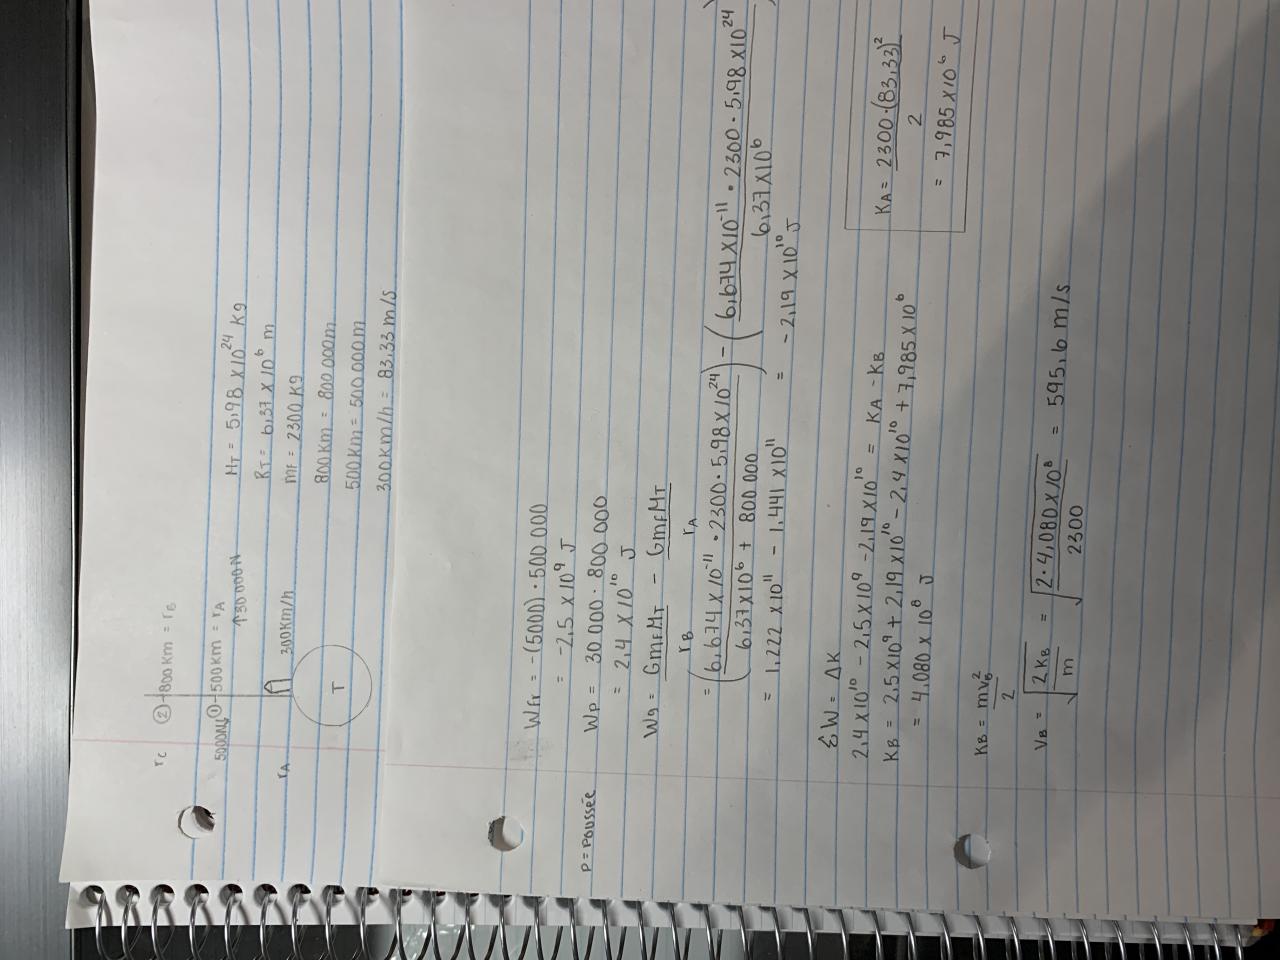 rc ②-800 km = rB
5000N↓ ①-500 km = rA
↑30 000N
rA 300km/h
T
MT = 5,98 x 10^24 kg
RT = 6,37 x 10^6 m
mf = 2300 kg
800 km = 800 000 m
500 km = 500 000 m
300 km/h = 83,33 m/s
Wfr = -(5000) • 500 000
= -2,5 x 10^9 J
p = poussée Wp = 30 000 • 800 000
= 2,4 x 10^10 J
Wg = GmfMT/rB - GmfMT/rA
= (6,674 x 10^-11 • 2300 • 5,98 x 10^24 / 6,37 x 10^6 + 800 000) - (6,674 x 10^-11 • 2300 • 5,98 x 10^24 / 6,37 x 10^6)
= 1,222 x 10^11 - 1,441 x 10^11 = -2,19 x 10^10 J
ΣW = ΔK
2,4 x 10^10 - 2,5 x 10^9 - 2,19 x 10^10 = KA - KB
KB = 2,5 x 10^9 + 2,19 x 10^10 - 2,4 x 10^10 + 7,985 x 10^6
= 4,080 x 10^8 J
KA = 2300 • (83,33)^2 / 2
= 7,985 x 10^6 J
KB = mvB^2 / 2
VB = √(2KB / m) = √(2 • 4,080 x 10^8 / 2300) = 595,6 m/s